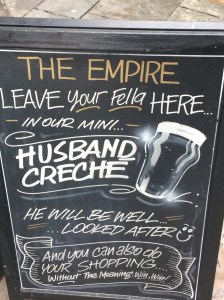 THE EMPIRE
LEAVE your Fella HERE...
IN OUR MINI...
HUSBAND
CRECHE
HE WILL BE WELL...
...LOOKED AFTER
And you can also do
YOUR SHOPPING...
Without The Moaning. Win. Win!